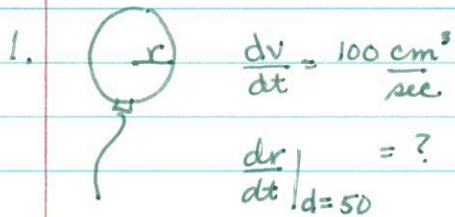 1.
r
dv/dt = 100 cm³/sec
dr/dt |d=50 = ?